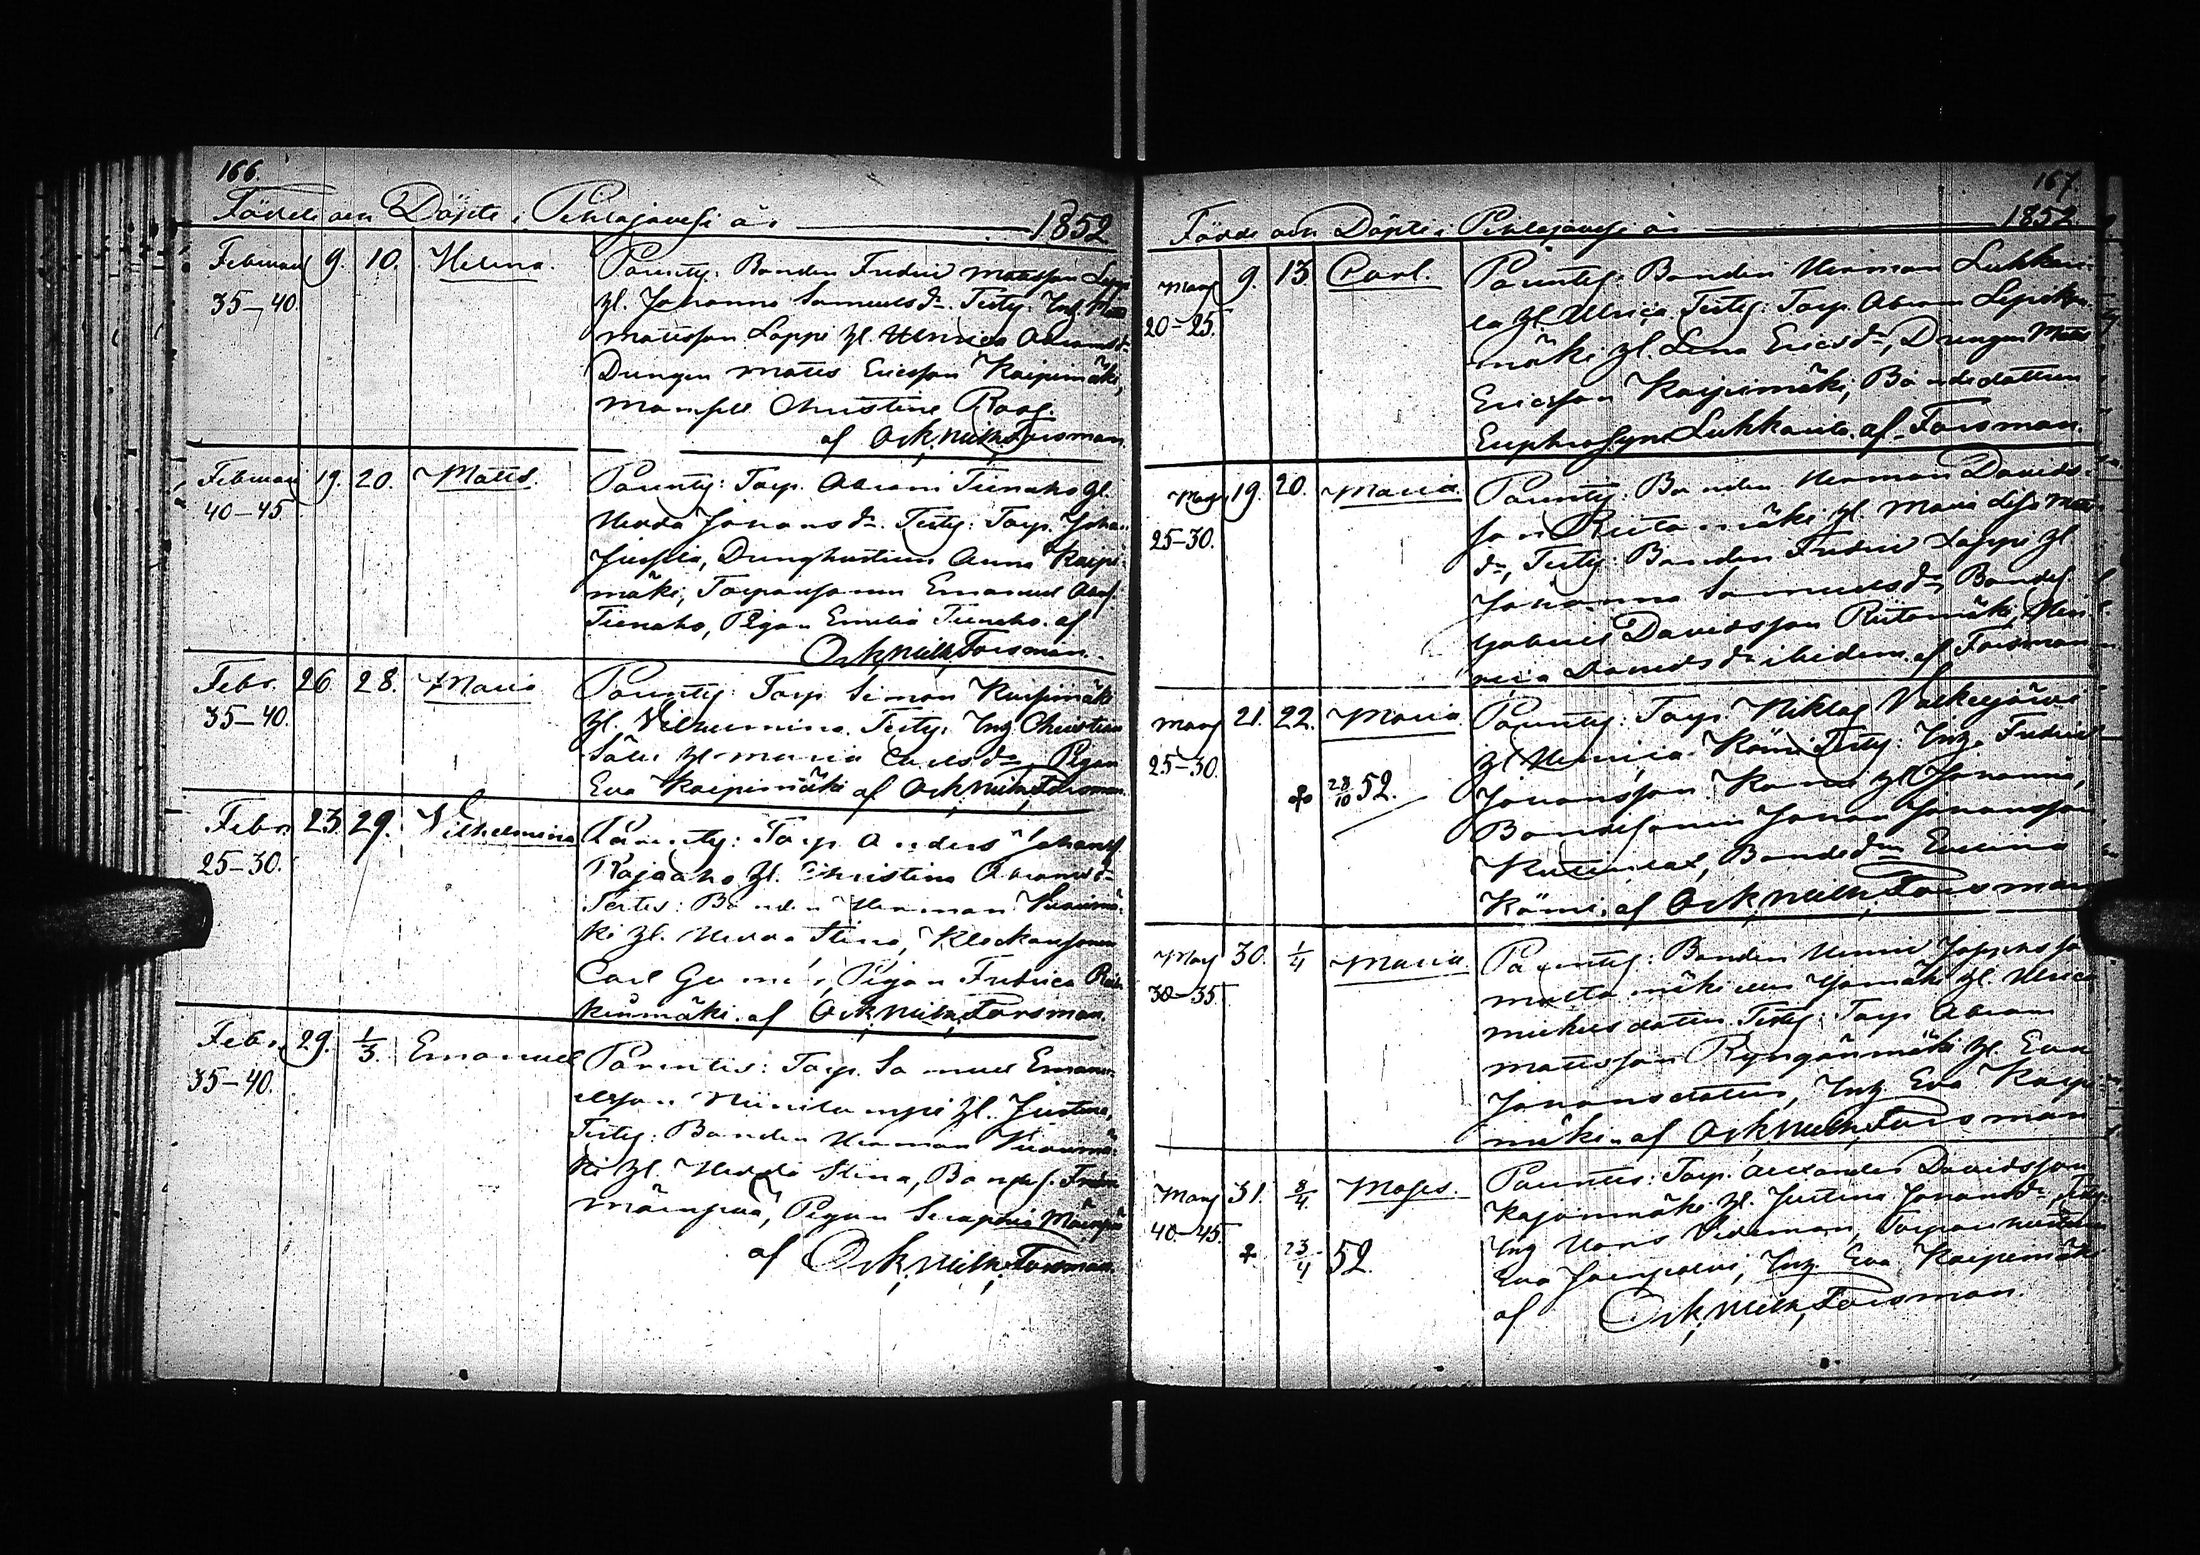 166.
Födde och Döpte i Pihlajavesi år 1852
Februari 9. 10. Helena. Parentes: Bonden Fredric Mattsson Lappi
35–40. gl. Johanna Samuelsdr. Testes: Inh.
Mattsson Lappi gl. Ulrica Abramsdr
Drengen Matts Ericsson Kaipimäki,
Mamsell Christine Roos.
af Osk. Wilh. Forsman.
Februari 19. 20. Matts. Parentes: Torp. Abram Tienaho gl.
40–45 Hedda Johansdr. Testes: Torp. Johan
Jussila, Drenghustrun Anna Kaipi-
mäki, Torparsonen Emanuel
Tienaho, Pigan Emilia Tienaho. af
Osk. Wilh. Forsman.
Febr. 26 28. Maria Parentes: Torp. Simon Kaipimäki
35–40. gl. Vilhelmina. Testes: Inh. Christian
gl. Maria Carlsdr, Pigan
Eva Kaipimäki af Osk. Wilh. Forsman.
Febr. 23. 29. Vilhelmina Parentes: Torp. Anders Johanss.
25–30. Rajaaho gl. Christina Abramsdr
Testes: Bonden Herman Vuorimä-
ki gl. Hedda Stina, Klockarsonen
Carl Pigan Fredrica
af Osk. Wilh. Forsman.
Febr. 29. 1/3. Emanuel Parentes: Torp. Samuel Emanu-
35–40. elsson Niinilampi gl. Justina,
Testes: Bonden Herman Vuorimä-
ki gl. Hedda Stina, Bondes. Fredric
Mäenpää, Pigan Seraphia Mäenpää
af Osk. Wilh. Forsman.
167.
Födde och Döpte i Pihlajavesi år 1852.
Mars 9. 13 Carl. Parentes: Bonden Herman Luhkari-
20–25. la gl. Ulrica. Testes: Torp. Abram
mäki gl. Lena Ericsdr, Drengen Matts
Ericsson Kaipimäki, Bondedottren
Euphrosyne Luhkarila. af Forsman.
Mars 19. 20. Maria. Parentes: Bonden Herman Davids-
25–30. son Riitamäki gl. Maria Lisa Matts-
dr, Testes: Bonden Fredric Lappi gl
Johanna Samuelsdr, Bondes.
Gabriel Davidsson Riitamäki,
Davidsdr ibidem. af Forsman
Mars 21. 22. Maria. Parentes: Torp. Niklas Valkeejärvi
25–30. gl Ulrica Kömi Testes: Inh. Fredric
28/10 52. Johansson gl Johanna,
Bondesonen Johan Johansson
Bondedren Evelina
Kömi. af Osk. Wilh. Forsman
Mars 30. 1/4 Maria. Parentes: Bonden
30–35 gl. Ulrica
Testes: Torp. Abram
Mattsson gl. Eva
Johansdotter, Inh. Eva Kaipi-
mäki. af Osk. Wilh. Forsman
Mars 31. 8/4. Moses. Parentes: Torp. Alexander Davidsson
40–45. Kajanmäki gl. Justina Johansdr, Testes:
23/4 52. Inh. Hans Torparehustrun
Eva Inh. Eva Kaipimäki
af Osk. Wilh. Forsman.